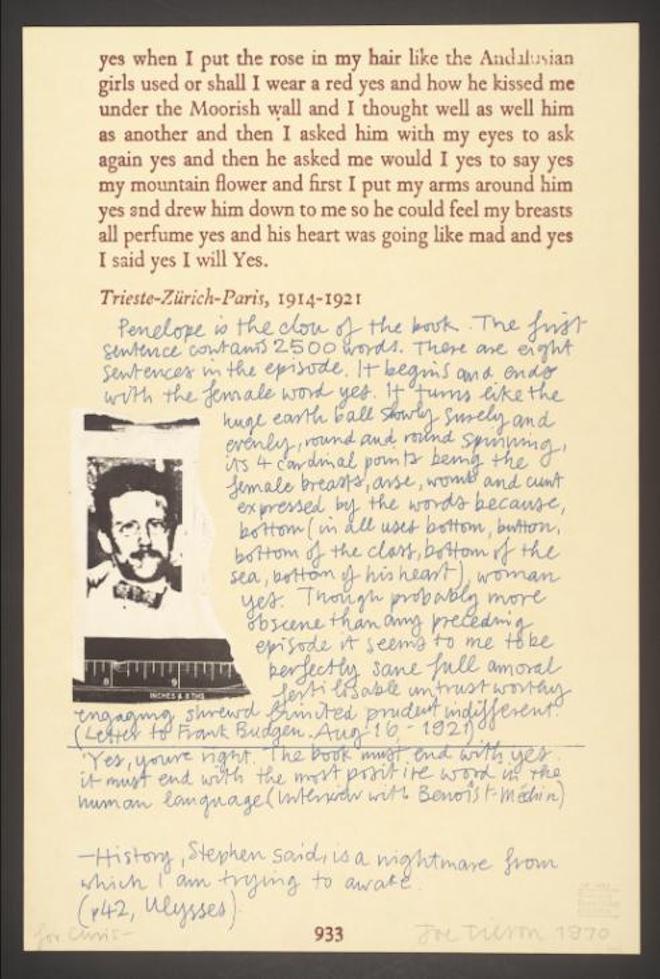 yes when I put the rose in my hair like the Andalusian
girls used or shall I wear a red yes and how he kissed me
under the Moorish wall and I thought well as well him
as another and then I asked him with my eyes to ask
again yes and then he asked me would I yes to say yes
my mountain flower and first I put my arms around him
yes and drew him down to me so he could feel my breasts
all perfume yes and his heart was going like mad and yes
I said yes I will Yes.
Trieste-Zürich-Paris, 1914-1921
Penelope is the clou of the book. The first
sentence contains 2500 words. There are eight
sentences in the episode. It begins and ends
with the female word yes. It turns like the
huge earth ball slowly surely and
evenly, round and round spinning,
its 4 cardinal points being the
female breasts, arse, womb and cunt
expressed by the words because,
bottom (in all uses bottom, button,
bottom of the class, bottom of the
sea, bottom of his heart), woman
yes. Though probably more
obscene than any preceding
episode it seems to me to be
perfectly sane full amoral
fertilisable untrustworthy
engaging shrewd limited prudent indifferent.
(Letter to Frank Budgen. Aug-16-1921)
8 9
INCHES & 8THS
'Yes, youre right. The book must end with yes.
it must end with the most positive word in the
human language (Interview with Benoist-Méchin)
—History, Stephen said, is a nightmare from
which I am trying to awake.
(p42, Ulysses)
for Chris-
933
Joe Tilson 1970